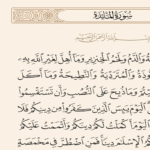 سُورَةُ المَائِدَةِ
وَٱلدَّمُ وَلَحۡمُ ٱلۡخِنزِيرِ وَمَآ أُهِلَّ لِغَيۡرِ ٱللَّهِ بِهِۦ
وَٱلۡمُتَرَدِّيَةُ وَٱلنَّطِيحَةُ وَمَآ أَكَلَ
وَمَا ذُبِحَ عَلَى ٱلنُّصُبِ وَأَن تَسۡتَقۡسِمُواْ
ٱلۡيَوۡمَ يَئِسَ ٱلَّذِينَ كَفَرُواْ مِن دِينِكُمۡ فَلَا
ٱلۡيَوۡمَ أَكۡمَلۡتُ لَكُمۡ دِينَكُمۡ وَأَتۡمَمۡتُ عَلَيۡكُمۡ
ٱلۡإِسۡلَٰمَ دِينٗا فَمَنِ ٱضۡطُرَّ فِي مَخۡمَصَةٍ